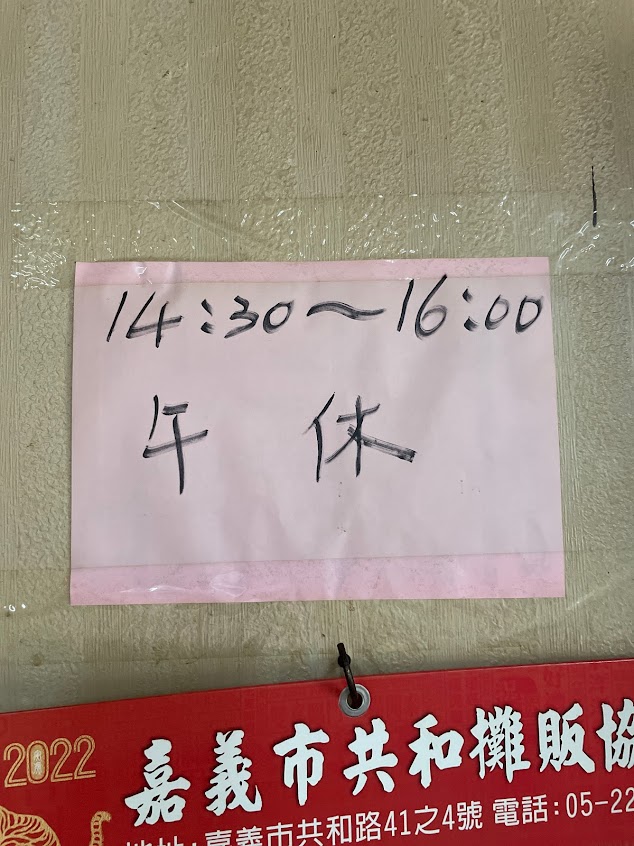 14:30～16:00
午 休
2022
嘉義市共和攤販協
地址:嘉義市共和路41之4號 電話:05-22